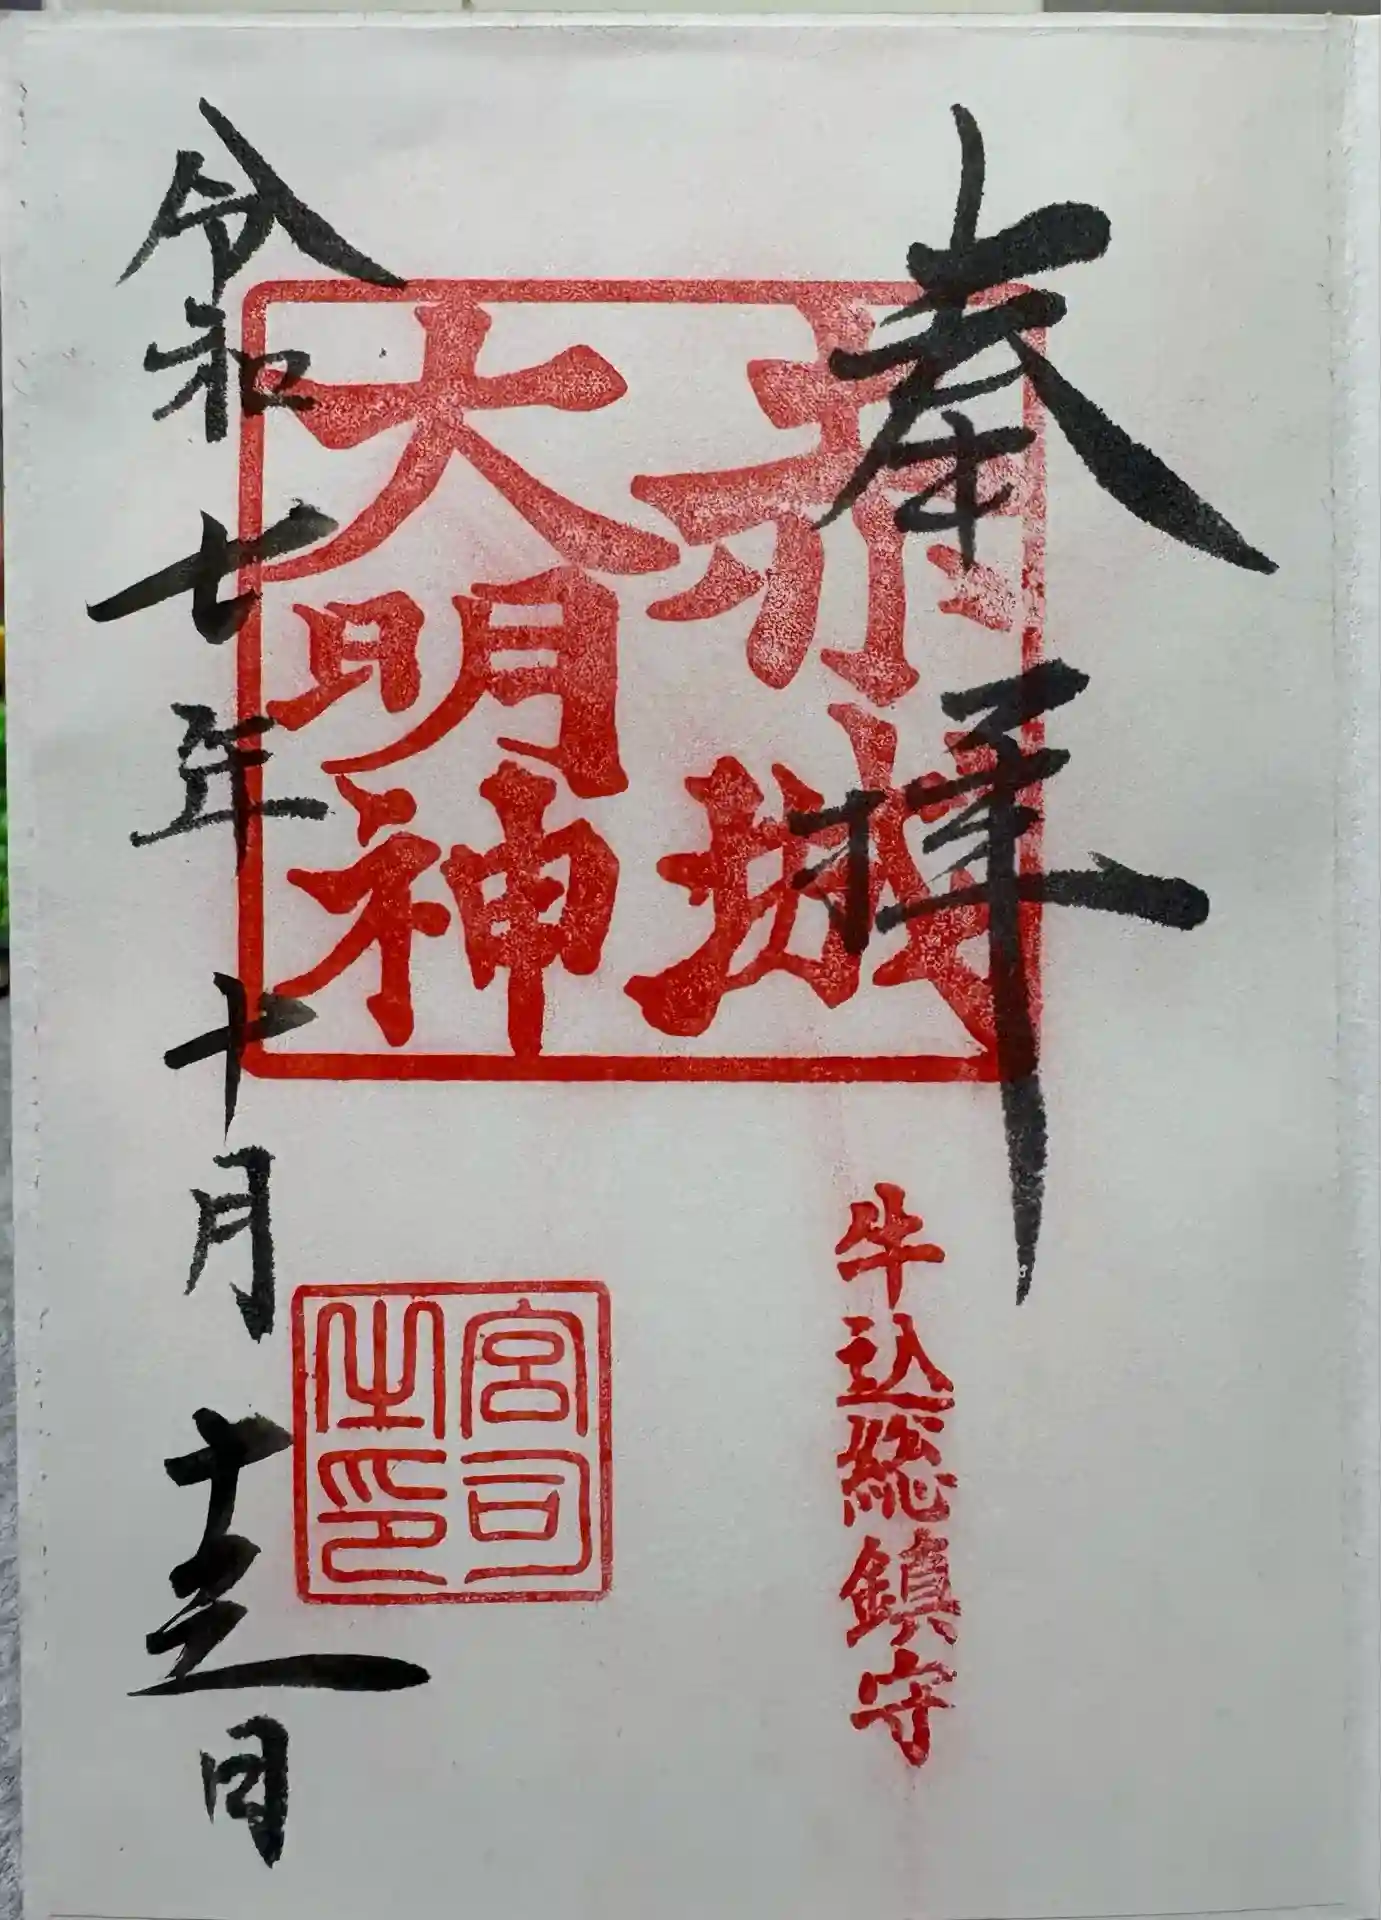 奉拝
赤城
大明神
牛込総鎮守
宮司
之印
令和七年十月十五日